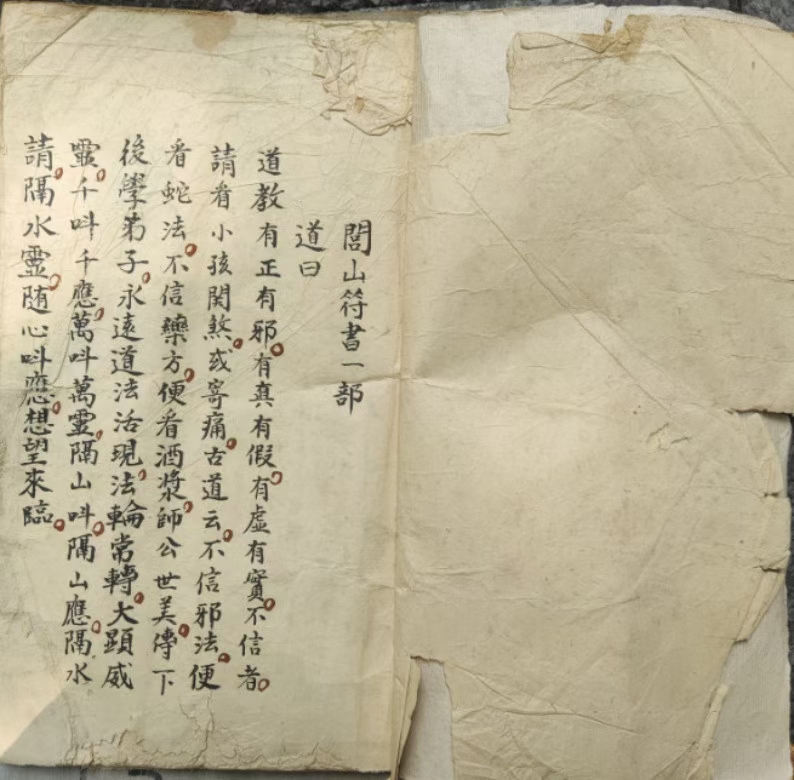 閭山符書一部
道曰
道教有正有邪有真有假有虛有實不信者
請看小孩関煞或寄痛古道云不信邪法便
看蛇法不信藥方便看酒漿師公世美傳下
後學弟子永遠道法活現法輪常轉大顕威
靈千呌千應萬呌萬靈隔山呌隔山應隔水
請隔水靈随心呌應想望來臨